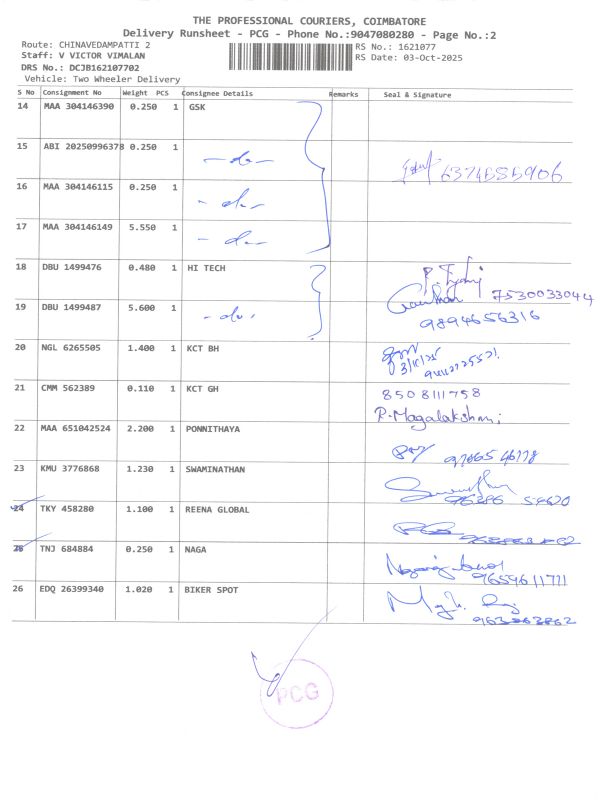 THE PROFESSIONAL COURIERS, COIMBATORE
Delivery Runsheet - PCG - Phone No.:9047080280 - Page No.:2
Route: CHINAVEDAMPATTI 2 RS No.: 1621077
Staff: V VICTOR VIMALAN RS Date: 03-Oct-2025
DRS No.: DCJB162107702
Vehicle: Two Wheeler Delivery
S No Consignment No Weight PCS Consignee Details Remarks Seal & Signature
14 MAA 304146390 0.250 1 GSK
15 ABI 20250996378 0.250 1 -do-
16 MAA 304146115 0.250 1 -do-
17 MAA 304146149 5.550 1 -do-
18 DBU 1499476 0.480 1 HI TECH 7530033044
19 DBU 1499487 5.600 1 -do- 9894656316
20 NGL 6265505 1.400 1 KCT BH 3/10/25
21 CMM 562389 0.110 1 KCT GH 8508111758
R. Magalakshmi
22 MAA 651042524 2.200 1 PONNITHAYA
23 KMU 3776868 1.230 1 SWAMINATHAN
24 TKY 458280 1.100 1 REENA GLOBAL
25 TNJ 684884 0.250 1 NAGA 9659611711
26 EDQ 26399340 1.020 1 BIKER SPOT
PCG